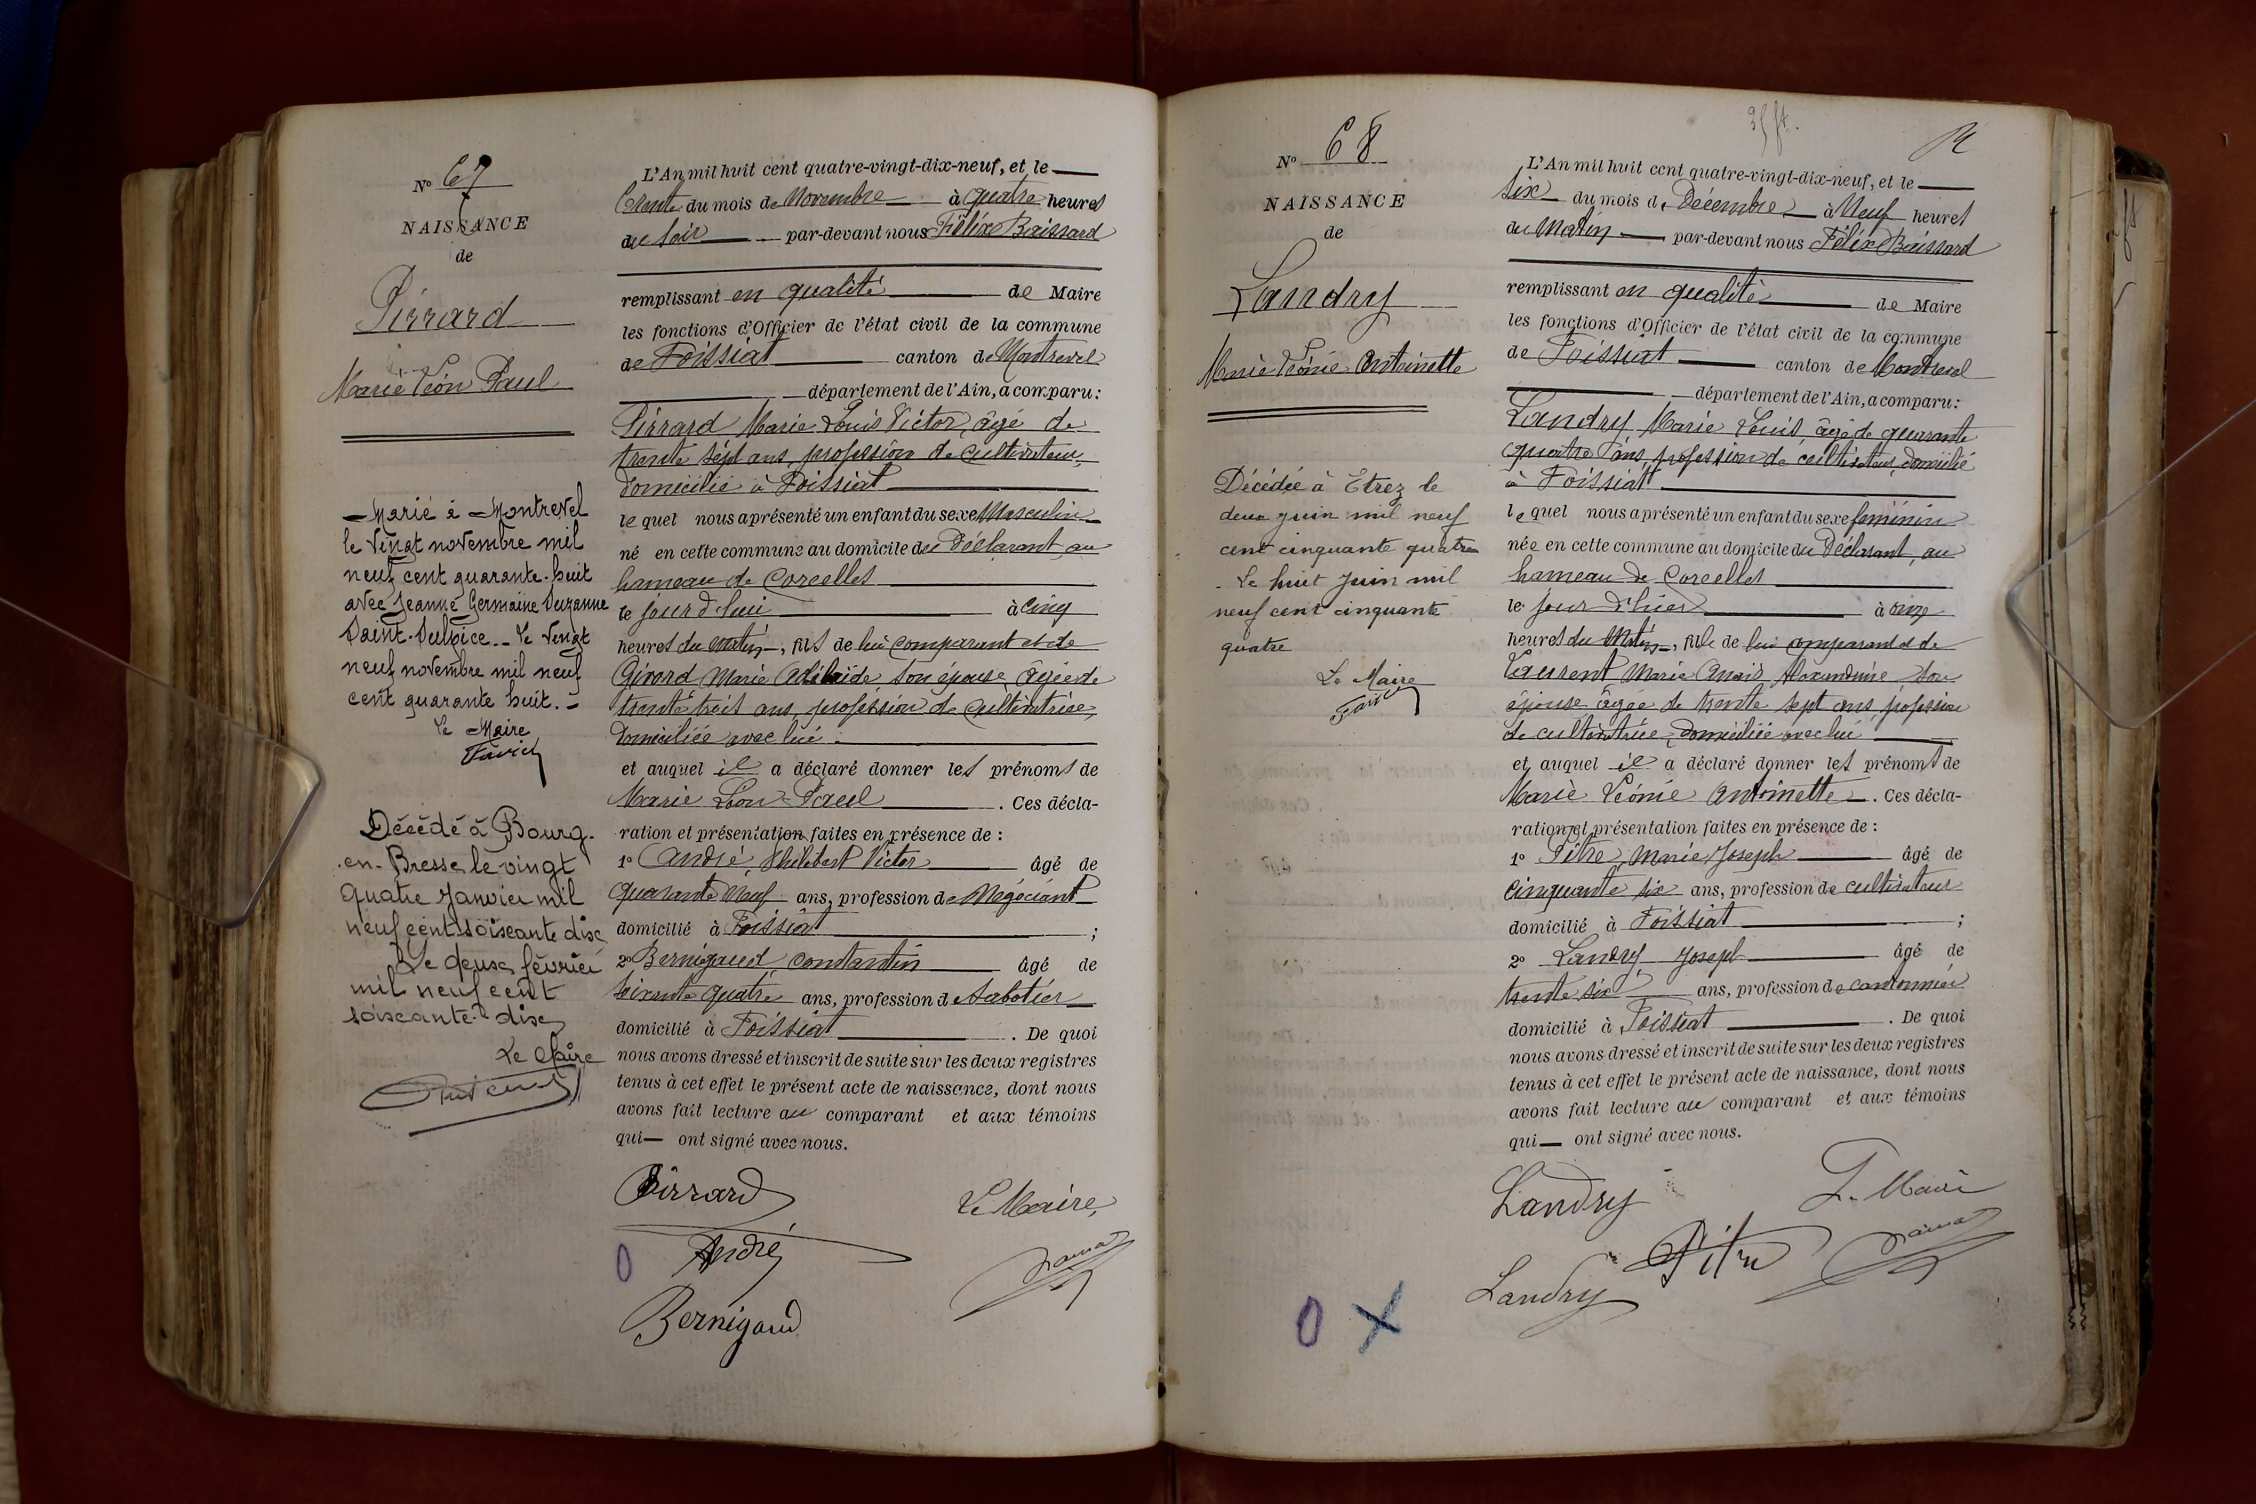 N° 67
NAISSANCE
de
Pirrard
Marie Léon Paul
Marié à Montrevel
le vingt novembre mil
neuf cent quarante-huit
avec Jeanne Germaine Suzanne
Saint-Sulpice. - Le vingt
neuf novembre mil neuf
cent quarante huit. -
Le Maire
Favier
Décédé à Bourg-
en-Bresse le vingt
quatre Janvier mil
neuf cent soixante dix
Le deux février
mil neuf cent
soixante-dix
Le Maire
L'An mil huit cent quatre-vingt-dix-neuf, et le
trente du mois de Novembre à quatre heures
du soir par-devant nous Félix Buissard
remplissant en qualité de Maire
les fonctions d'Officier de l'état civil de la commune
de Foissiat canton de Montrevel
département de l'Ain, a comparu :
Pirrard Marie Louis Victor, âgé de
trente sept ans, profession de cultivateur,
domicilié à Foissiat
le quel nous a présenté un enfant du sexe Masculin
né en cette commune au domicile du Déclarant, au
hameau de Corcelles
le jour d'hui à cinq
heures du matin, fils de lui comparant et de
Girard Marie Adélaïde son épouse âgée de
trente trois ans, profession de cultivatrice,
domiciliée avec lui.
et auquel il a déclaré donner les prénoms de
Marie Léon Paul . Ces décla-
ration et présentation faites en présence de :
1° André, Philibert Victor âgé de
quarante neuf ans, profession de Négociant
domicilié à Foissiat ;
2° Bernigaud Constantin âgé de
soixante quatre ans, profession de Sabotier
domicilié à Foissiat . De quoi
nous avons dressé et inscrit de suite sur les deux registres
tenus à cet effet le présent acte de naissance, dont nous
avons fait lecture au comparant et aux témoins
qui ont signé avec nous.
Pirrard
Le Maire,
André
Bernigaud
N° 68
NAISSANCE
de
Landry
Marie Léonie Antoinette
Décédée à Etrez le
deux juin mil neuf
cent cinquante quatre
Le huit Juin mil
neuf cent cinquante
quatre
Le Maire
Favier
L'An mil huit cent quatre-vingt-dix-neuf, et le
six du mois de Décembre à Neuf heures
du Matin par-devant nous Félix Buissard
remplissant en qualité de Maire
les fonctions d'Officier de l'état civil de la commune
de Foissiat canton de Montrevel
département de l'Ain, a comparu :
Landry Marie Louis, âgé de quarante
quatre ans, profession de cultivateur, domicilié
à Foissiat
le quel nous a présenté un enfant du sexe féminin
née en cette commune au domicile du Déclarant, au
hameau de Corcelles
le jour d'hier à onze
heures du Matin, fille de lui comparant et de
Laurent Marie Anaïs son
épouse âgée de trente sept ans, profession
de cultivatrice, domiciliée avec lui
et auquel il a déclaré donner les prénoms de
Marie Léonie Antoinette . Ces décla-
ration et présentation faites en présence de :
1° Pitre, Marie Joseph âgé de
cinquante six ans, profession de cultivateur
domicilié à Foissiat ;
2° Landry Joseph âgé de
trente six ans, profession de cantonnier
domicilié à Foissiat . De quoi
nous avons dressé et inscrit de suite sur les deux registres
tenus à cet effet le présent acte de naissance, dont nous
avons fait lecture au comparant et aux témoins
qui ont signé avec nous.
Landry
Le Maire
Pitre
Landry
O X